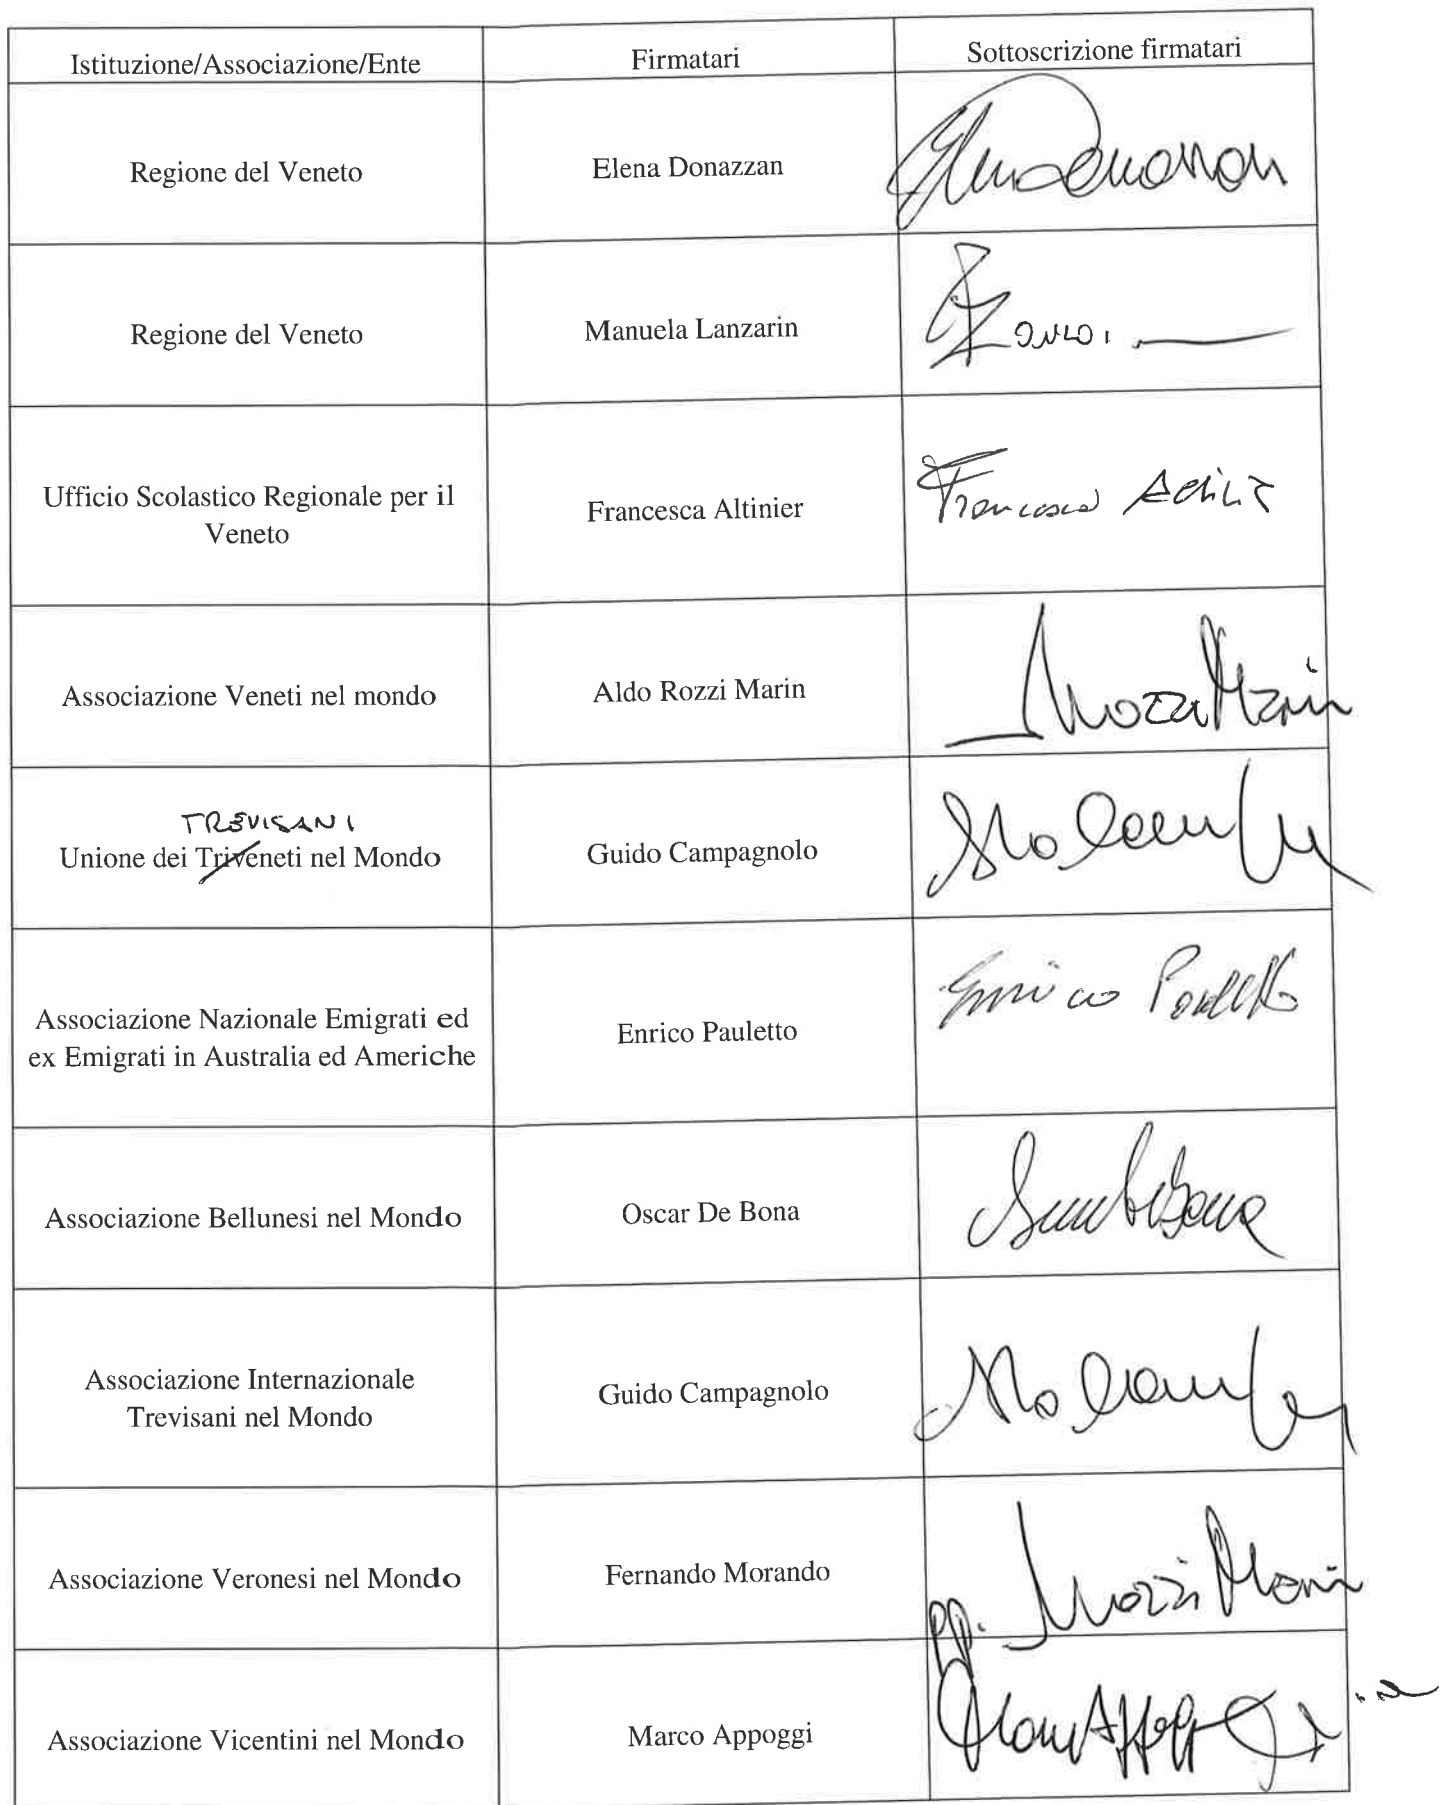 Istituzione/Associazione/Ente Firmatari Sottoscrizione firmatari
Regione del Veneto Elena Donazzan
Regione del Veneto Manuela Lanzarin
Ufficio Scolastico Regionale per il
Veneto
Francesca Altinier Francesca
Associazione Veneti nel mondo Aldo Rozzi Marin Rozzi Marin
TREVISANI
Unione dei Triveneti nel Mondo Guido Campagnolo
Associazione Nazionale Emigrati ed
ex Emigrati in Australia ed Americhe
Enrico Pauletto Enrico Pauletto
Associazione Bellunesi nel Mondo Oscar De Bona
Associazione Internazionale
Trevisani nel Mondo
Guido Campagnolo
Associazione Veronesi nel Mondo Fernando Morando pp. Rozzi Marin
Associazione Vicentini nel Mondo Marco Appoggi